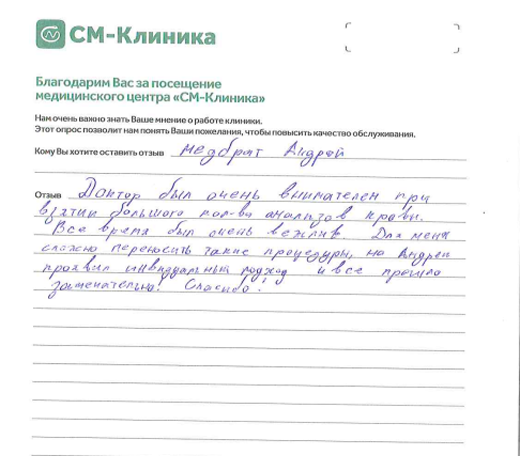 СМ-Клиника
Благодарим Вас за посещение
медицинского центра «СМ-Клиника»
Нам очень важно знать Ваше мнение о работе клиники.
Этот опрос позволит нам понять Ваши пожелания, чтобы повысить качество обслуживания.
Кому Вы хотите оставить отзыв медбрат Андрей
Отзыв Доктор был очень внимателен при
взятии большого кол-ва анализов крови.
Все время был очень вежлив Для меня
сложно переносить такие процедуры, но Андрей
проявил индивидуальный подход и все прошло
замечательно! Спасибо!